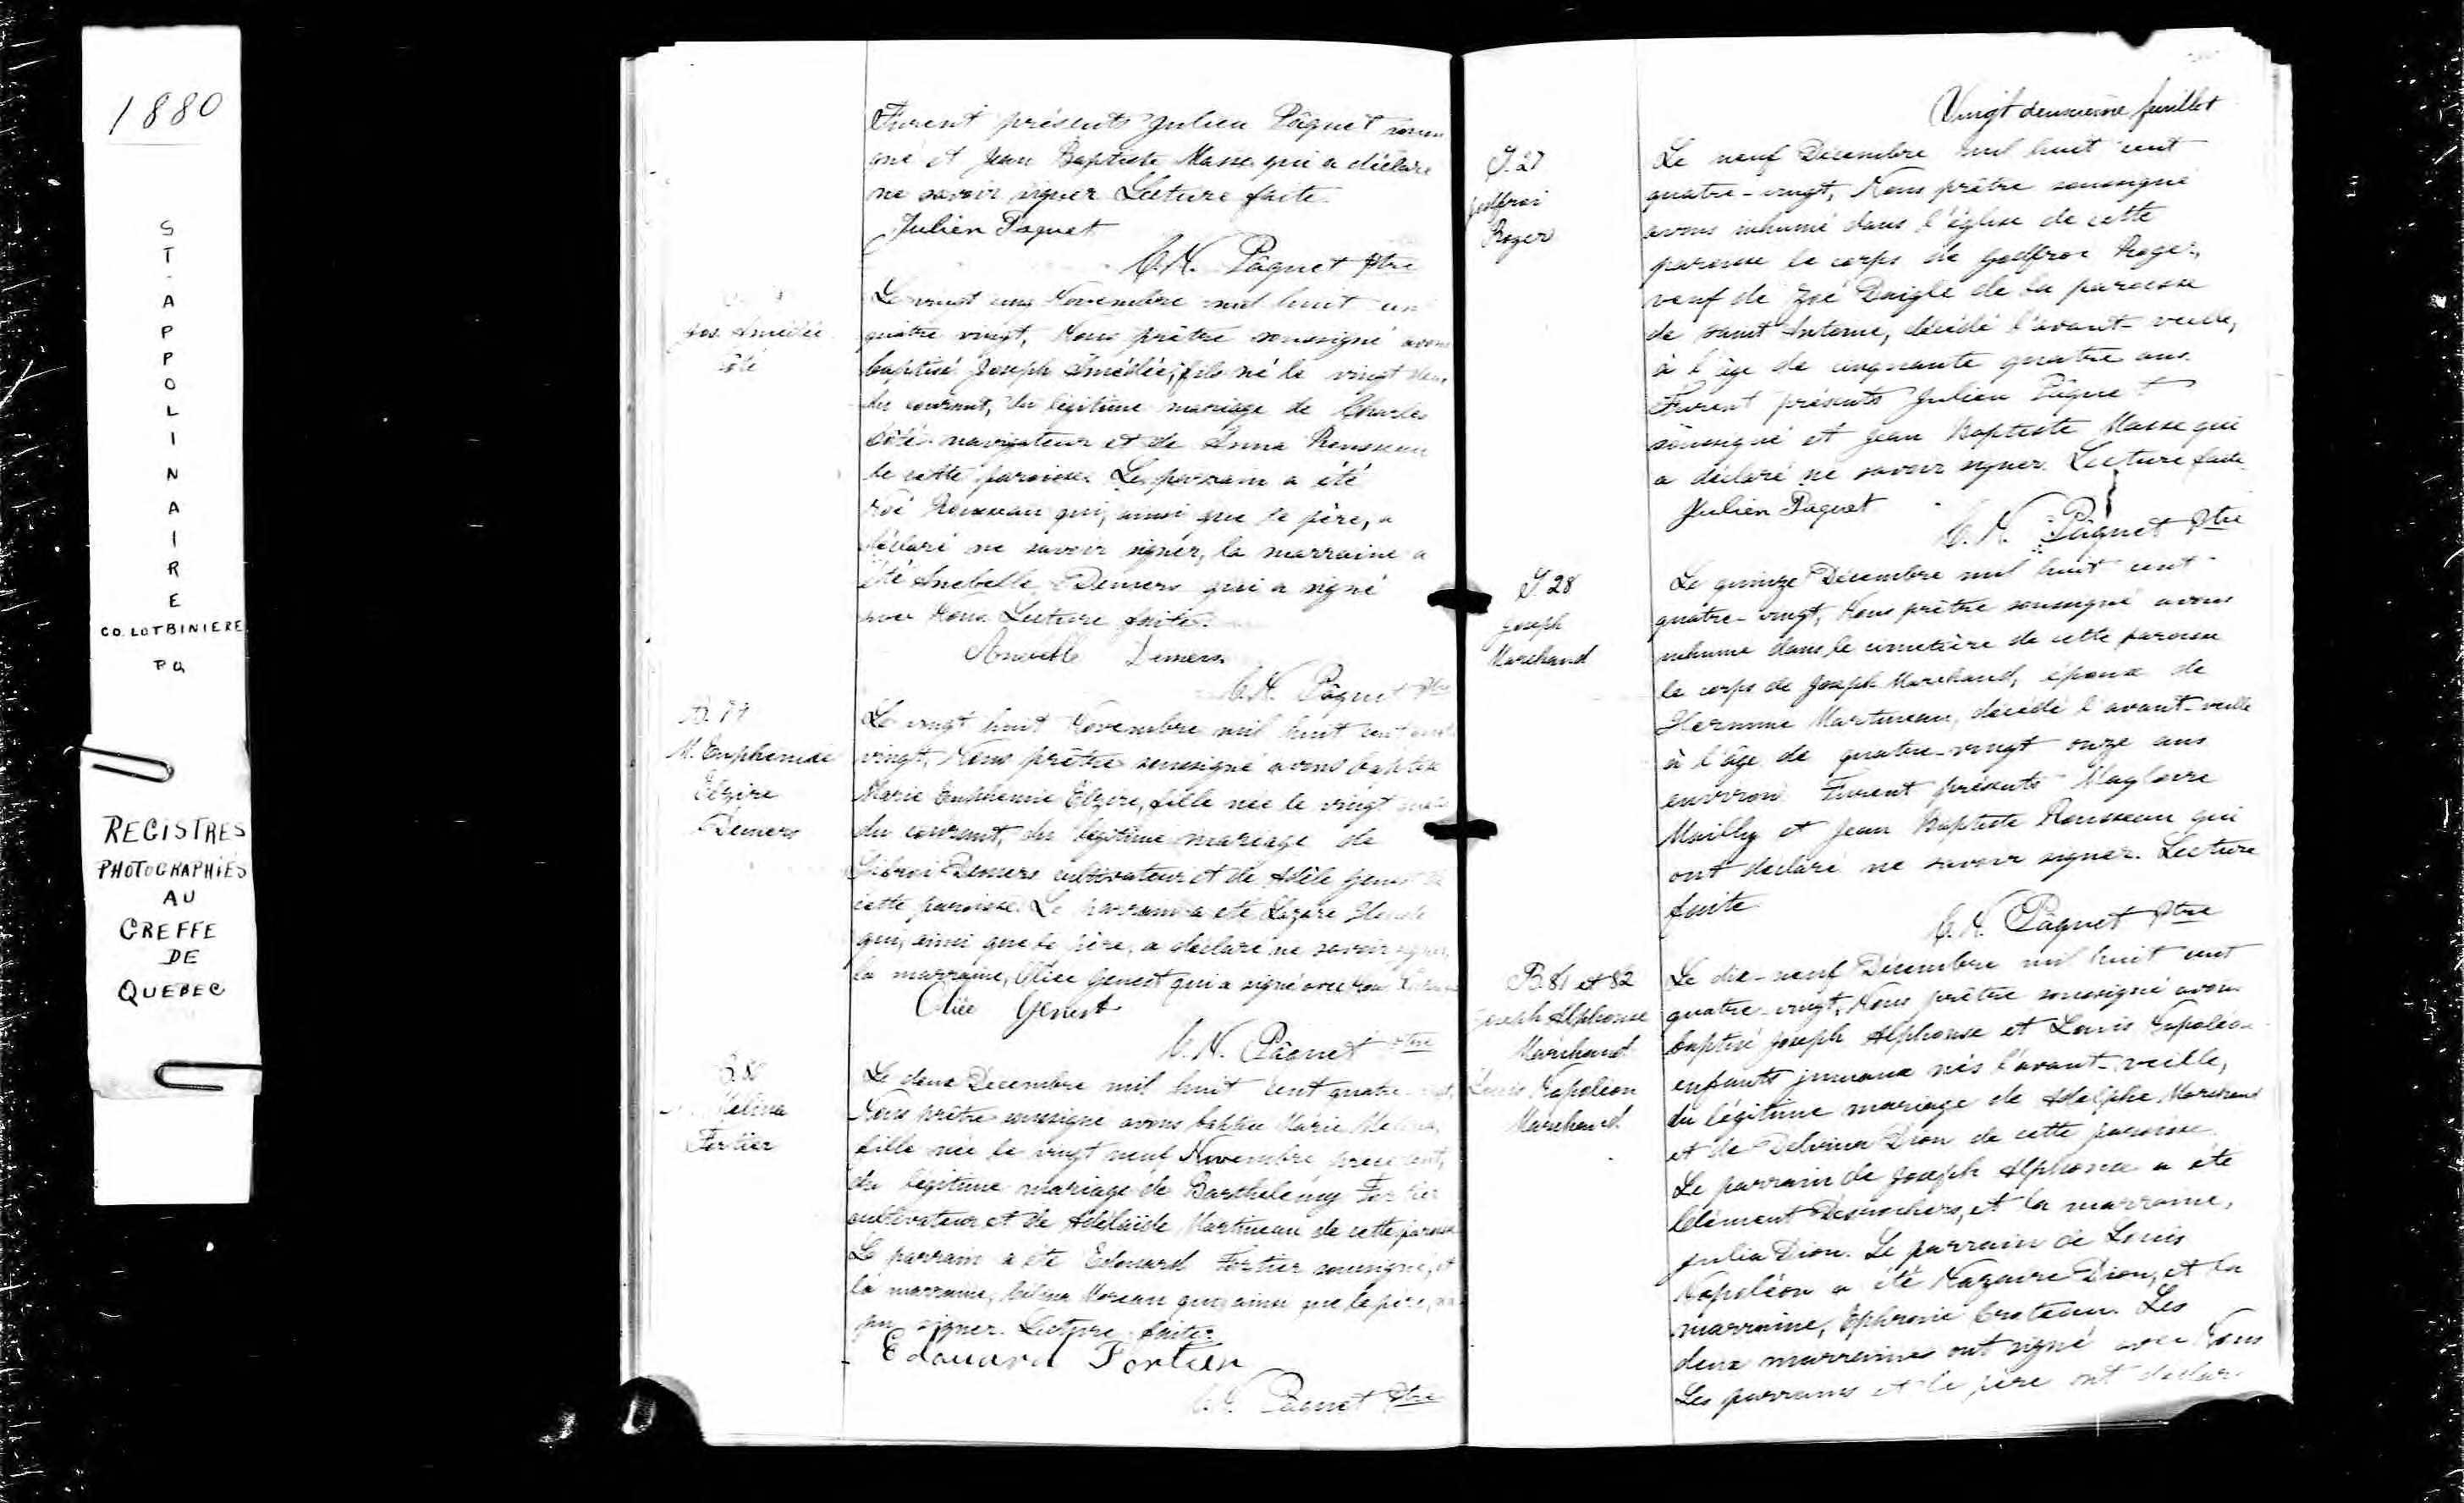 1880
ST. APPOLINAIRE
CO. LOTBINIERE
P Q
REGISTRES
PHOTOGRAPHIÉS
AU
GREFFE
DE
QUEBEC
Furent présents Julien Pâquet soussi
gné et Jean Baptiste Masse qui a déclaré
ne savoir signer. Lecture faite.
Julien Paquet
Pâquet Ptre
Jos. Amédée
Côté
Le vingt Novembre mil huit
quatre vingt, Nous prêtre soussigné avons
baptisé Joseph Amédée, fils né le vingt
du courant, du légitime mariage de Charles
Côté navigateur et de Anna Rousseau
de cette paroisse. Le parrain a été
Noé Rousseau qui, ainsi que le père, a
déclaré ne savoir signer, la marraine a
été Anebelle Demers qui a signé
avec Nous. Lecture faite.
Anebelle Demers
Pâquet Ptre
B. 79
M. Euphemie
Elzire
Demers
Le vingt huit Novembre mil huit cent
vingt, Nous prêtre soussigné avons baptisé
Marie Euphemie Elzire, fille née le vingt
du courant, du légitime mariage de
Demers cultivateur et de Adèle Genest de
cette paroisse. Le parrain a été Lazare
qui, ainsi que le père, a déclaré ne savoir signer,
la marraine, Olice Genest qui a signé avec Nous
Genest
Pâquet Ptre
B. 80
Melina
Fortier
Le deux Decembre mil huit cent quatre
Nous prêtre soussigné avons baptisé Marie Melina,
fille née le vingt neuf Novembre precedent,
du légitime mariage de Barthelemy Fortier
cultivateur et de Adélaïde Martineau de cette paroisse
Le parrain a été Edouard Fortier soussigné, et
la marraine, Moreau qui, ainsi que le père,
pu signer. Lecture faite.
Edouard Fortier
Pâquet Ptre
Vingt deuxième feuillet
S. 27
Godfroi
Roger
Le neuf Décembre mil huit cent
quatre-vingt, Nous prêtre soussigné
avons inhumé dans l'église de cette
paroisse le corps de Godfroi Roger,
veuf de Zoé Daigle de la paroisse
de saint Antoine, décédé l'avant-veille,
à l'âge de cinquante quatre ans.
Furent présents Julien Pâquet
soussigné et Jean Baptiste Masse qui
a déclaré ne savoir signer. Lecture faite.
Julien Paquet
Pâquet Ptre
S 28
Joseph
Marchand
Le quinze Décembre mil huit cent
quatre-vingt, Nous prêtre soussigné avons
inhumé dans le cimetière de cette paroisse
le corps de Joseph Marchand, époux de
Hermine Martineau, décédé l'avant-veille
à l'âge de quatre-vingt onze ans
environ. Furent présents Magloire
Mailly et Jean Baptiste Rousseau qui
ont déclaré ne savoir signer. Lecture
faite
Pâquet Ptre
B. 81 et 82
Joseph Alphonse
Marchand
Louis Napoléon
Marchand
Le dix-neuf Décembre mil huit cent
quatre-vingt, Nous prêtre soussigné avons
baptisé Joseph Alphonse et Louis Napoléon
enfants jumeaux nés l'avant-veille,
du légitime mariage de Adolphe Marchand
et de Delvina Dion de cette paroisse.
Le parrain de Joseph Alphonse a été
Clément Desrochers, et la marraine,
Julia Dion. Le parrain de Louis
Napoléon a été Nazaire Dion, et la
marraine, Ephronie Croteau. Les
deux marraines ont signé avec Nous
Les parrains et le père ont déclaré